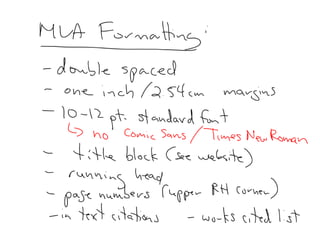 MLA Formatting:
- double spaced
- one inch / 2.54 cm margins
- 10-12 pt. standard font
↳ no Comic Sans / Times New Roman
- title block (see website)
- running head
- page numbers (upper RH corner)
- in text citations - works cited list